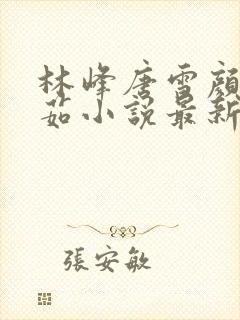 林峰唐雪顏
茹小說最新
張安敏